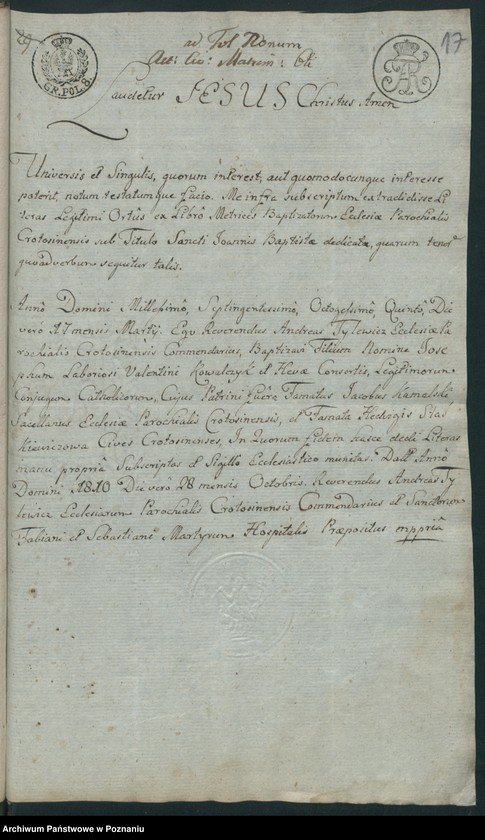 29
ad Fol Nonum
17
Act: Civ: Matrim:
GR.POL 8.
Laudetur JESUS Christus Amen
Universis et Singulis, quorum interest, aut quomodocunque interesse
poterit, notum testatumque facio. Me infra subscriptum extradidisse Li
teras Legitimi Ortus ex Libro Metrices Baptizatorum Ecclesiæ Parochialis
Crotosinensis sub Titulo Sancti Joannis Baptistæ dedicatæ, quarum tenor
quo ad verbum sequitur talis.
Annô Domini Millesimô, Septingentesimô, Octogesimô, Quintô, Die
vero 17 mensis Martij. Ego Reverendus Andreas Tylewicz Ecclesiæ Pa
rochialis Crotosinensis Commendarius, Baptizavi Filium Nomine Jose
phum Laboriosi Valentini Kowalczyk et Hevæ Consortis, Legitimorum
Conjugum Catholicorum, Cujus Patrini fuêre Famatus Jacobus Kamalski
Sacellanus Ecclesiæ Parochialis Crotosinensis, et Famata Hedvigis
Cives Crotosinenses, In Quorum fidem hasce dedi Literas
manu propriâ Subscriptas et Sigillo Ecclesiastico munitas. Datt: Annô
Domini 1810 Die vero 28 mensis Octobris. Reverendus Andreas Ty
lewicz Ecclesiarum Parochialis Crotosinensis Commendarius et Sanctorum
Fabiani et Sebastiani Martyrum Hospitalis Præpositus mppriâ
Archiwum Państwowe w Poznaniu